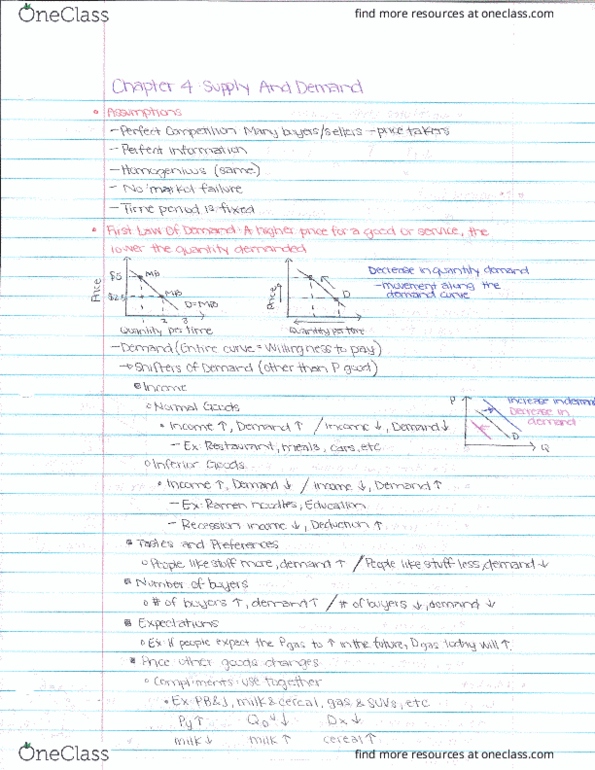 OneClass
find more resources at oneclass.com
Chapter 4: Supply And Demand
• Assumptions
- Perfect Competition Many buyers/sellers - price takers
- Perfect Information
- Homogenius (same)
- No market failure
- Time period is fixed
• First Law Of Demand: A higher price for a good or service, the
lower the quantity demanded
Price
$5
MB
MB
D=MB
1 2 3
Quantity per time
Price
D
Quantity per time
Decrease in quantity demand
- movement along the
demand curve
- Demand (Entire curve = Willingness to pay)
→ Shifters of Demand (other than P good)
Income
Normal Goods
• Income ↑, Demand ↑ / income ↓, Demand ↓
- Ex: Restaurant, meals, cars, etc
P
Increase in deman
Decrease in
demand
D
Q
Inferior Goods
• Income ↑, Demand ↓ / income ↓, Demand ↑
- Ex: Ramen noodles, Education
- Recession income ↓, Deduction ↑
Tastes and Preferences
People like stuff more, demand ↑ / People like stuff less, demand ↓
Number of buyers
# of buyers ↑, demand ↑ / # of buyers ↓, demand ↓
Expectations
Ex: If people expect the Pgas to ↑ in the future, Dgas today will ↑.
Price other goods changes
Compliments: use together
• Ex: PB&J, milk & cereal, gas & SUVs, etc
Py ↑ Dx ↓
milk ↓ milk ↑ cereal ↑
OneClass
find more resources at oneclass.com